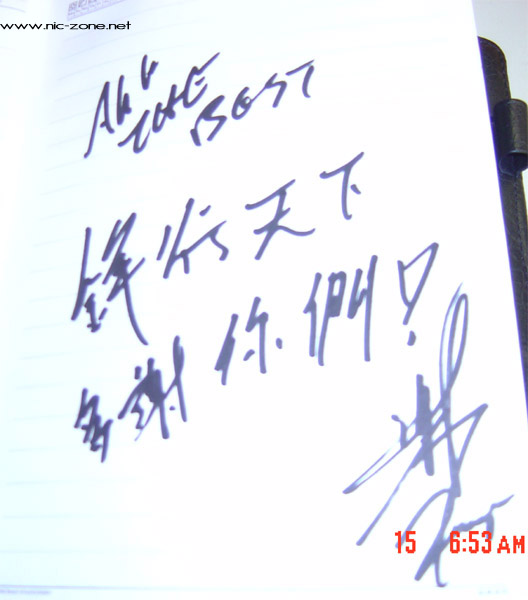 www.nic-zone.net
ALL
THE
BEST
鋒行天下
多謝你們!
15 6:53 AM